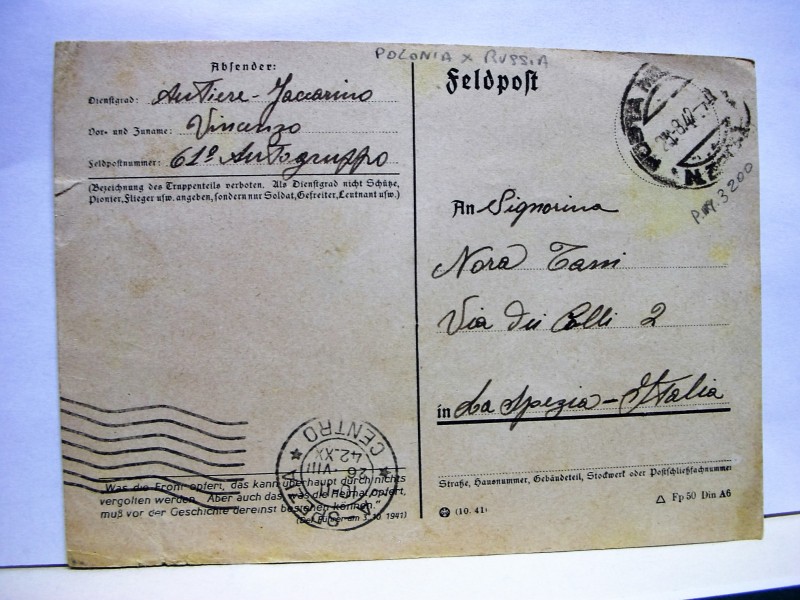 POLONIA x RUSSIA
Absender:
Dienstgrad: Autiere - Jaccarino
Vor- und Zuname: Vincenzo
Feldpostnummer: 61º Autogruppo
(Bezeichnung des Truppenteils verboten. Als Dienstgrad nicht Schütze,
Pionier, Flieger usw. angeben, sondern nur Soldat, Gefreiter, Leutnant usw.)
Feldpost
POSTA
P.M. 3200
An Signorina
Nora Tassi
Via dei Colli 2
in La Spezia - Italia
Straße, Hausnummer, Gebäudeteil, Stockwerk oder Postschließfachnummer
Fp 50 Din A6
(10. 41)
SPEZIA
CENTRO
26 - VIII
42. XX
Was die Front opfert, das kann überhaupt durch nichts
vergolten werden. Aber auch das, was die Heimat opfert,
muß vor der Geschichte dereinst bestehen können."
(Der Führer am 3. 10. 1941)